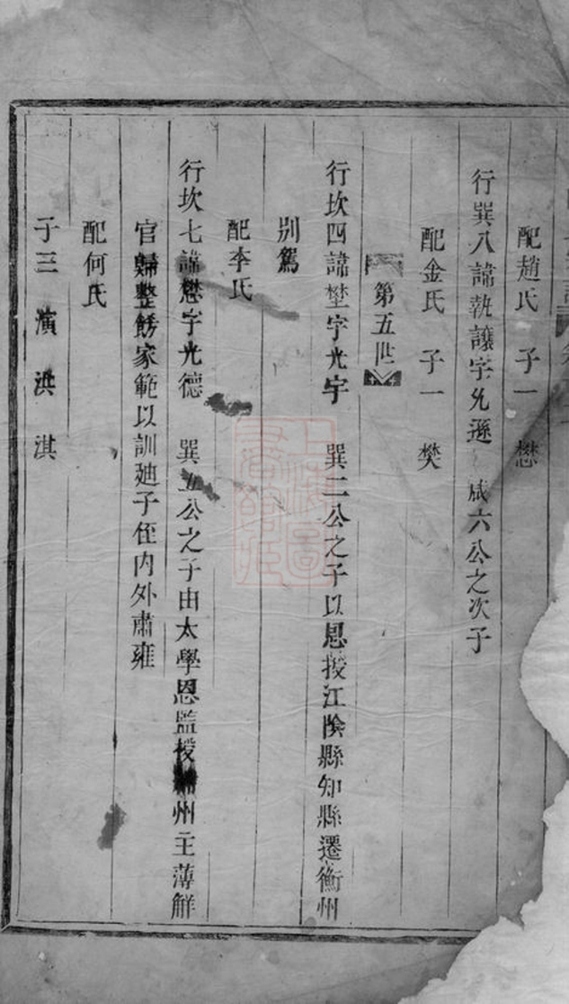 配趙氏　子一　懋
行巽八諱執讓字允遜　咸六公之次子
配金氏　子一　樊
第五世
行坎四諱埜字光宇　巽二公之子以恩授江陰縣知縣遷衡州
別駕
配李氏
行坎七諱懋字光德　巽五公之子由太學恩監授州主薄解
官歸整飭家範以訓廸子侄内外肅雍
配何氏
子三　濵　洪　淇